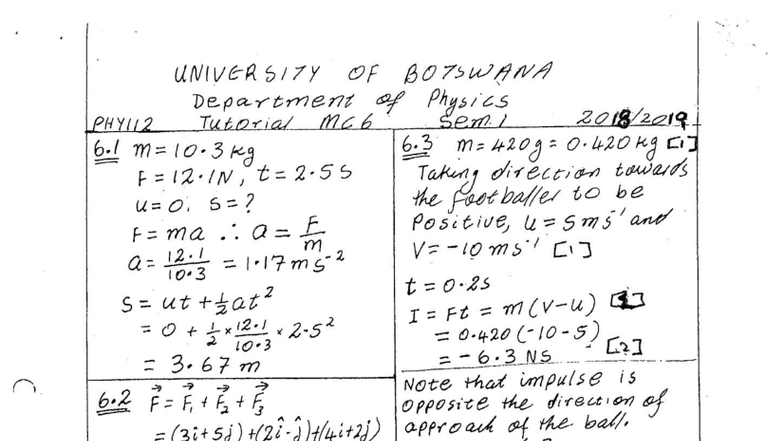 UNIVERSITY OF BOTSWANA
Department of Physics
PHY112 Tutorial MC6 Sem.1 2018/2019
6.1 m = 10.3 kg
F = 12.1N, t = 2.5 s
u = 0. s = ?
F = ma ∴ a = F/m
a = 12.1/10.3 = 1.17 m s⁻²
s = ut + ½at²
= 0 + ½ × 12.1/10.3 × 2.5²
= 3.67 m
6.2 F⃗ = F⃗₁ + F⃗₂ + F⃗₃
= (3î + 5ĵ) + (2î - ĵ) + (4î + 2ĵ)
6.3 m = 420g = 0.420 kg [1]
Taking direction towards
the footballer to be
Positive, u = 5 m s⁻¹ and
V = -10 m s⁻¹ [1]
t = 0.2s
I = Ft = m(V-u) [1]
= 0.420(-10-5)
= -6.3 NS [2]
Note that impulse is
opposite the direction of
approach of the ball.